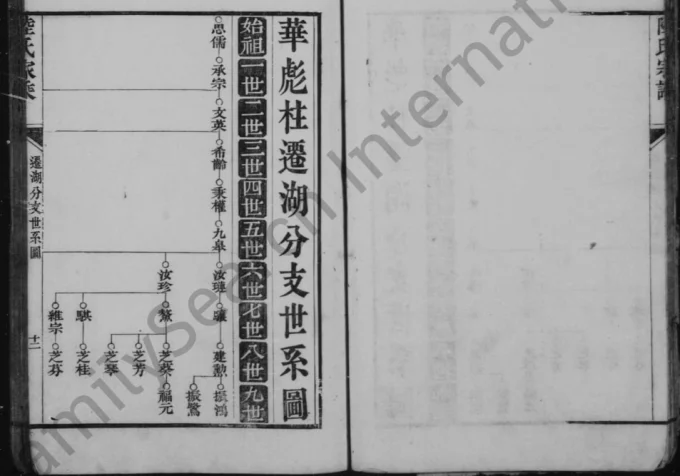 華彪柱遷湖分支世系圖
始祖 一世 二世 三世 四世 五世 六世 七世 八世 九世
思儒 承宗 文英 希齡 秉權 九皋 汝璉 驤 建勲 振鴻
振鷺
汝珍 驁 芝葵 福元
芝芳
芝琴
騏 芝桂
維宗 芝芬
陸氏家乘
遷湖分支世系圖
十二
FamilySearch International